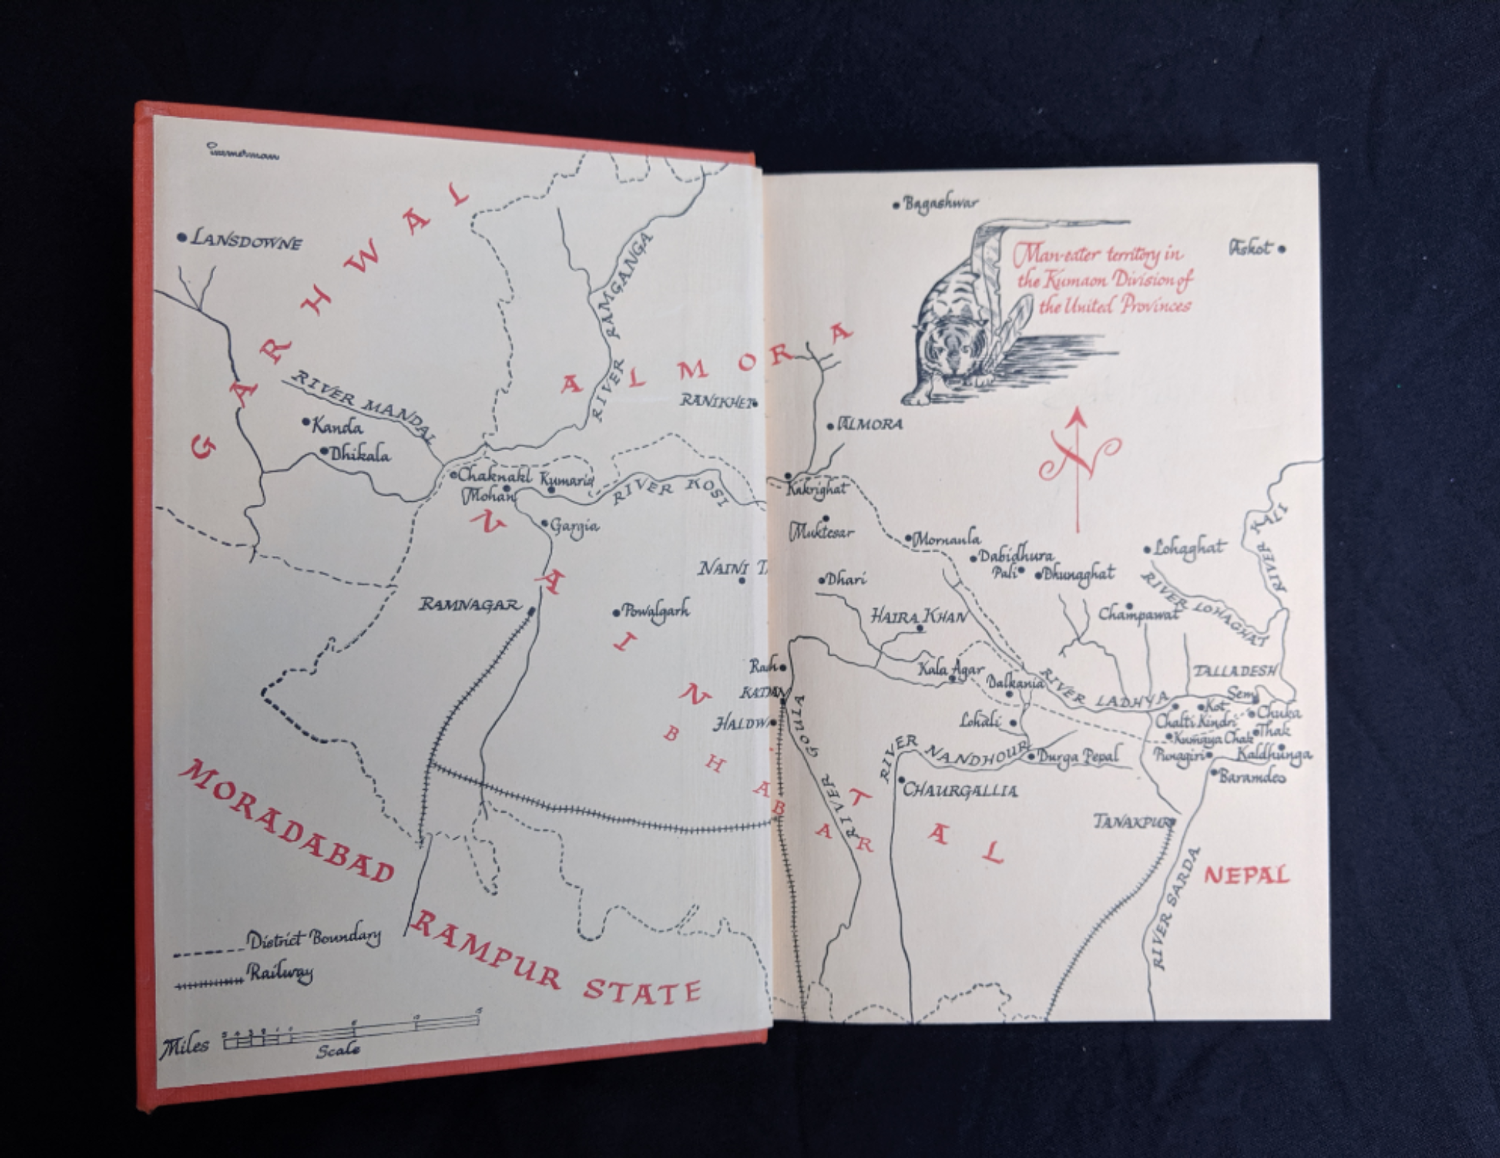 Zimmerman
GARHWAL
LANSDOWNE
RIVER MANDAL
Kanda
Dhikala
RIVER RAMGANGA
ALMORA
RANIKHET
Chaknakl
Kumaria
Mohan
RIVER KOSI
Gargia
NAINI TAL
NAINI T
RAMNAGAR
Powalgarh
Ran
KATAN
HALDW
BHABAR
MORADABAD
RAMPUR STATE
District Boundary
Railway
Miles
Scale
Bagashwar
Man-eater territory in
the Kumaon Division of
the United Provinces
Askot
ALMORA
N
Kakrighat
Muktesar
Mornaula
Dabidhura
Pali
Dhunaghat
Lohaghat
RIVER KALI
Dhari
HAIRA KHAN
RIVER LOHAGHAT
Champawat
Kala Agar
Dalkania
RIVER LADHYA
TALLADESH
Sem
Kot
Chuka
Chalti
Kindri
Thak
Kumaya Chak
Lohali
RIVER GOULA
RIVER NANDHOUR
Durga Pepal
Punagiri
Kaldhunga
Baramdeo
CHAURGALLIA
TANAKPUR
NEPAL
RIVER SARDA